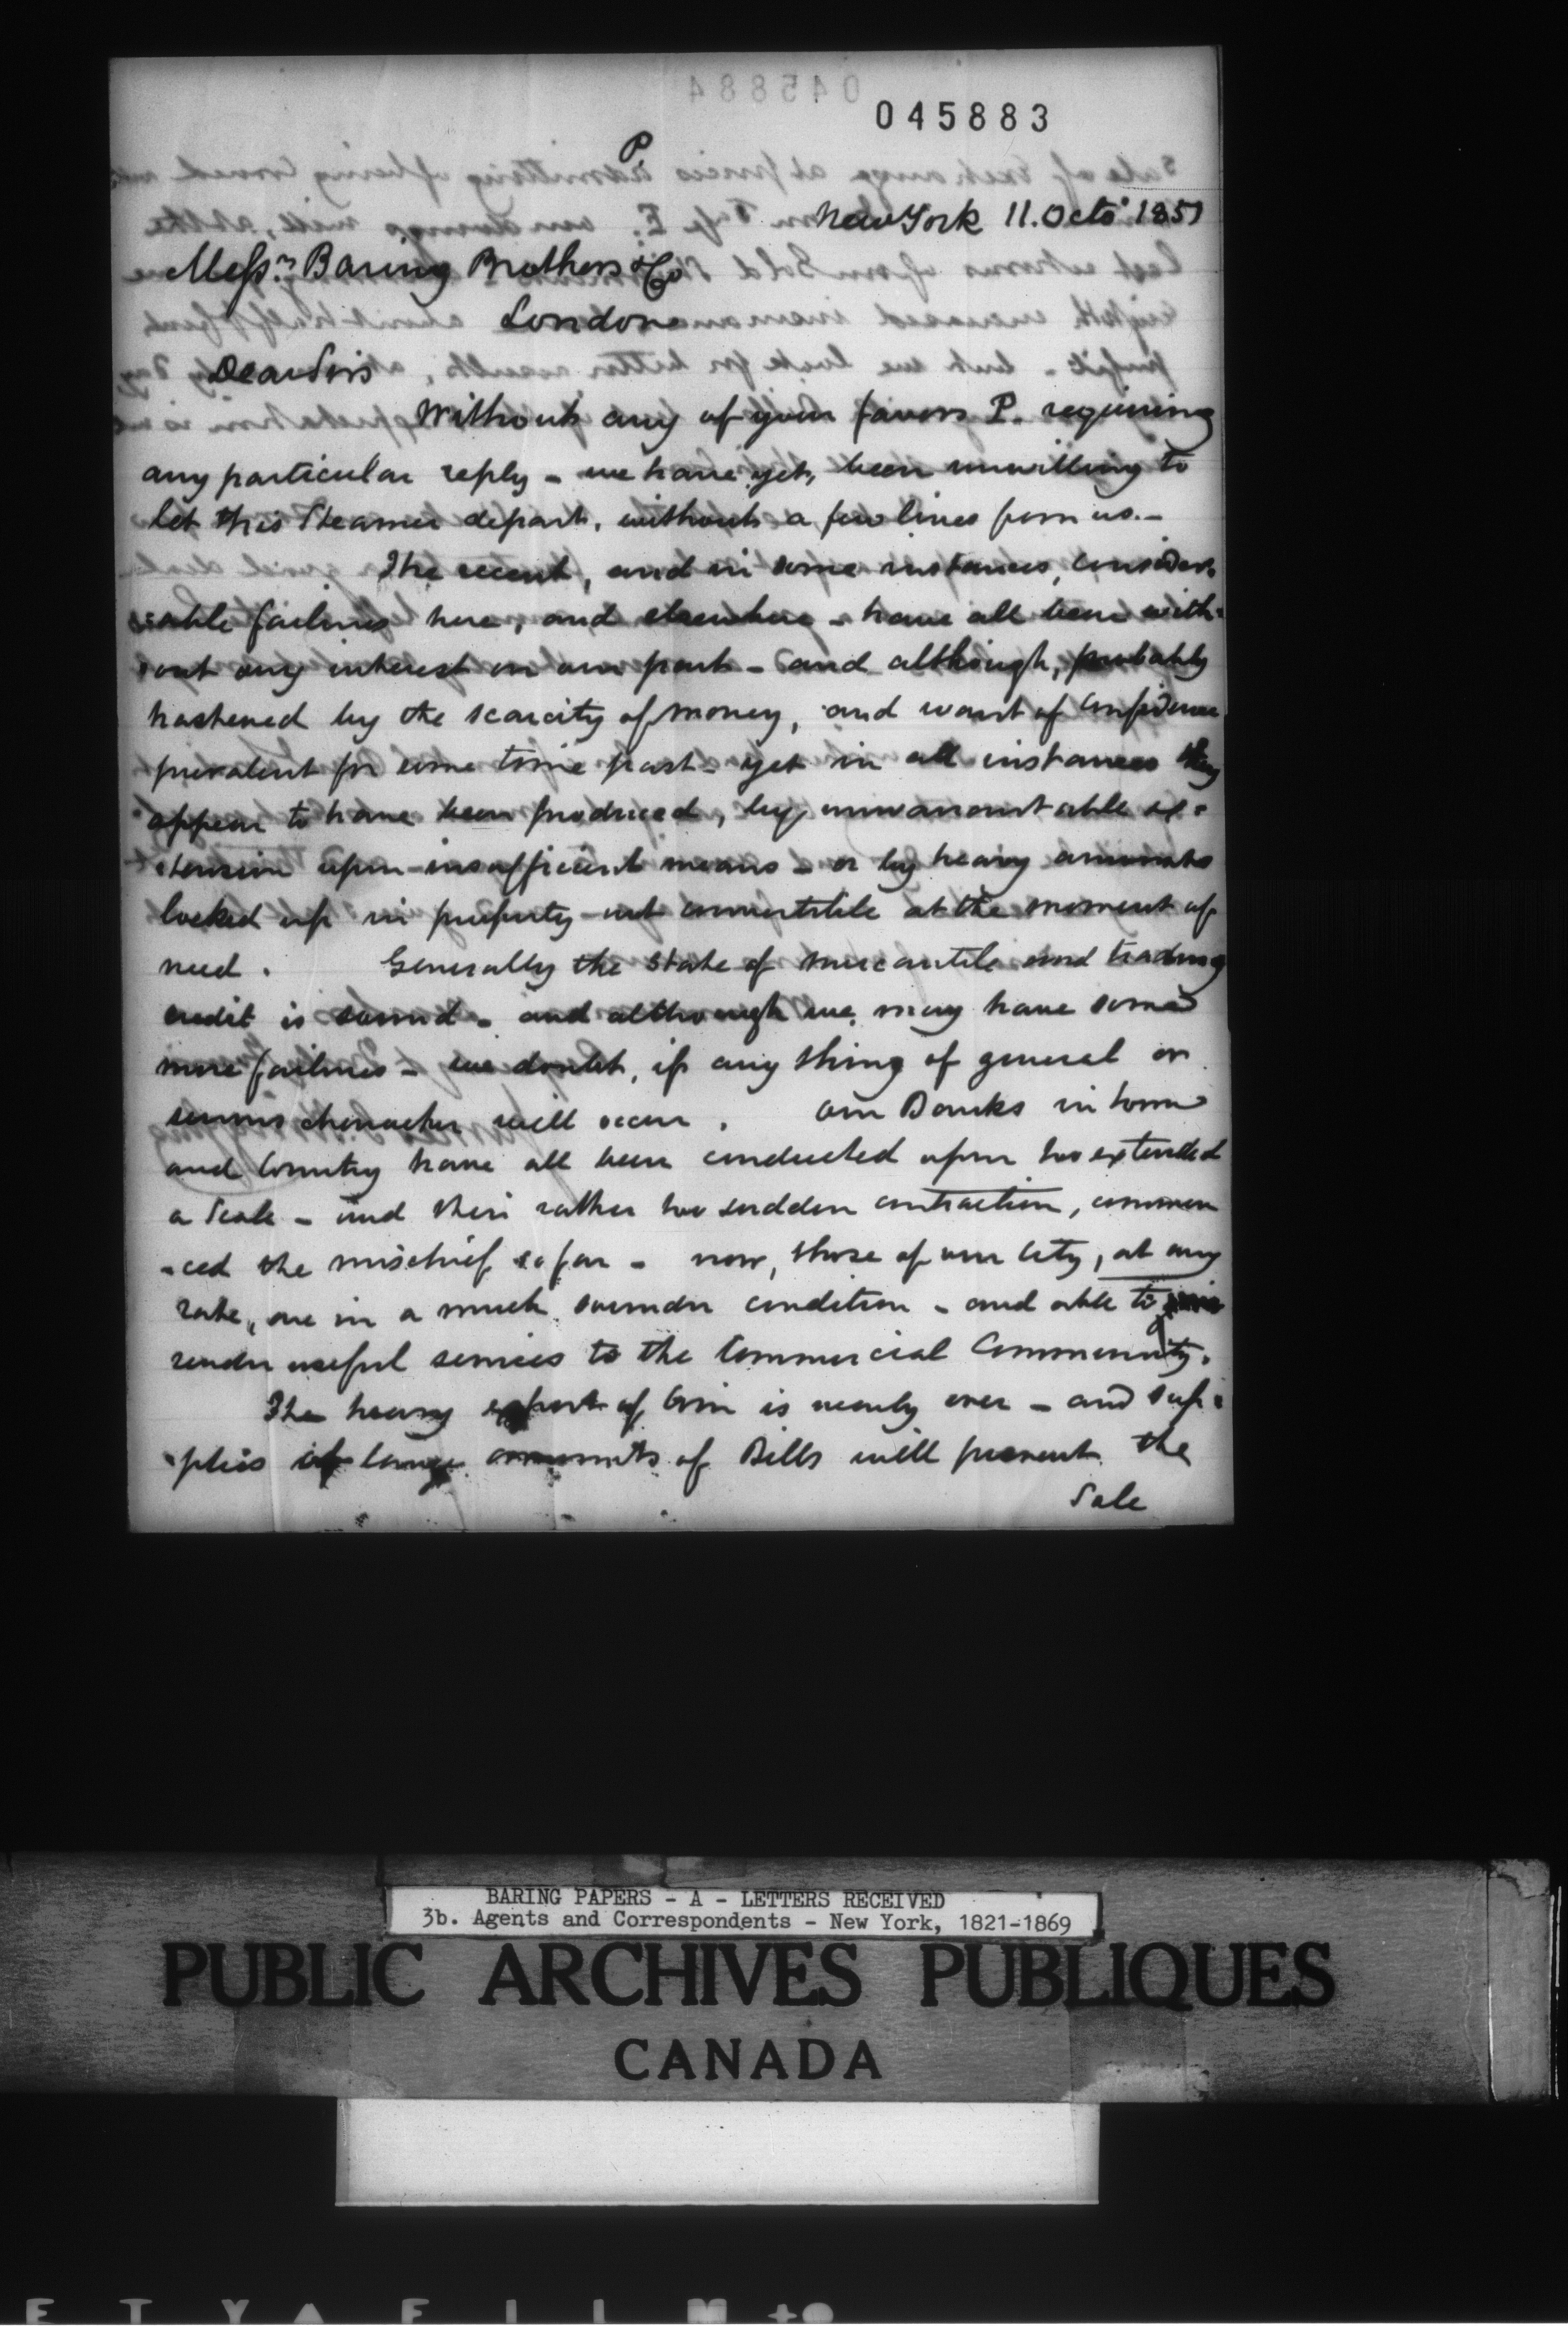 045884
045883
P.
New York 11. Octo 1851
Messrs Baring Brothers & Co
London
Dear Sirs
Without any of your favors P. requiring
any particular reply - we have yet, been unwilling to
let this Steamer depart, without a few lines from us. -
The recent, and in some instances, consider-
-able failures here, and elsewhere - have all been with-
-out any interest on our part - and although, probably
hastened by the scarcity of money, and want of confidence
prevalent for some time past - yet in all instances they
appear to have been produced, by unwarrantable ex-
-tension upon insufficient means - or by heavy amounts
locked up in property not convertible at the moment of
need. Generally the state of mercantile and trading
credit is sound - and although we may have some
more failures - we doubt, if any thing of general or
serious character will occur. Our Banks in town
and Country have all been conducted upon too extended
a Scale - and their rather too sudden contraction, commen
-ced the mischief so far - now, those of our City, at any
rate, are in a much sounder condition - and able to
render useful services to the Commercial Community.
The heavy export of Coin is nearly over - and sup-
-plies of large amounts of Bills will prevent the
Sale
BARING PAPERS - A - LETTERS RECEIVED
3b. Agents and Correspondents - New York, 1821-1869
PUBLIC ARCHIVES PUBLIQUES
CANADA
E T Y A F I L M